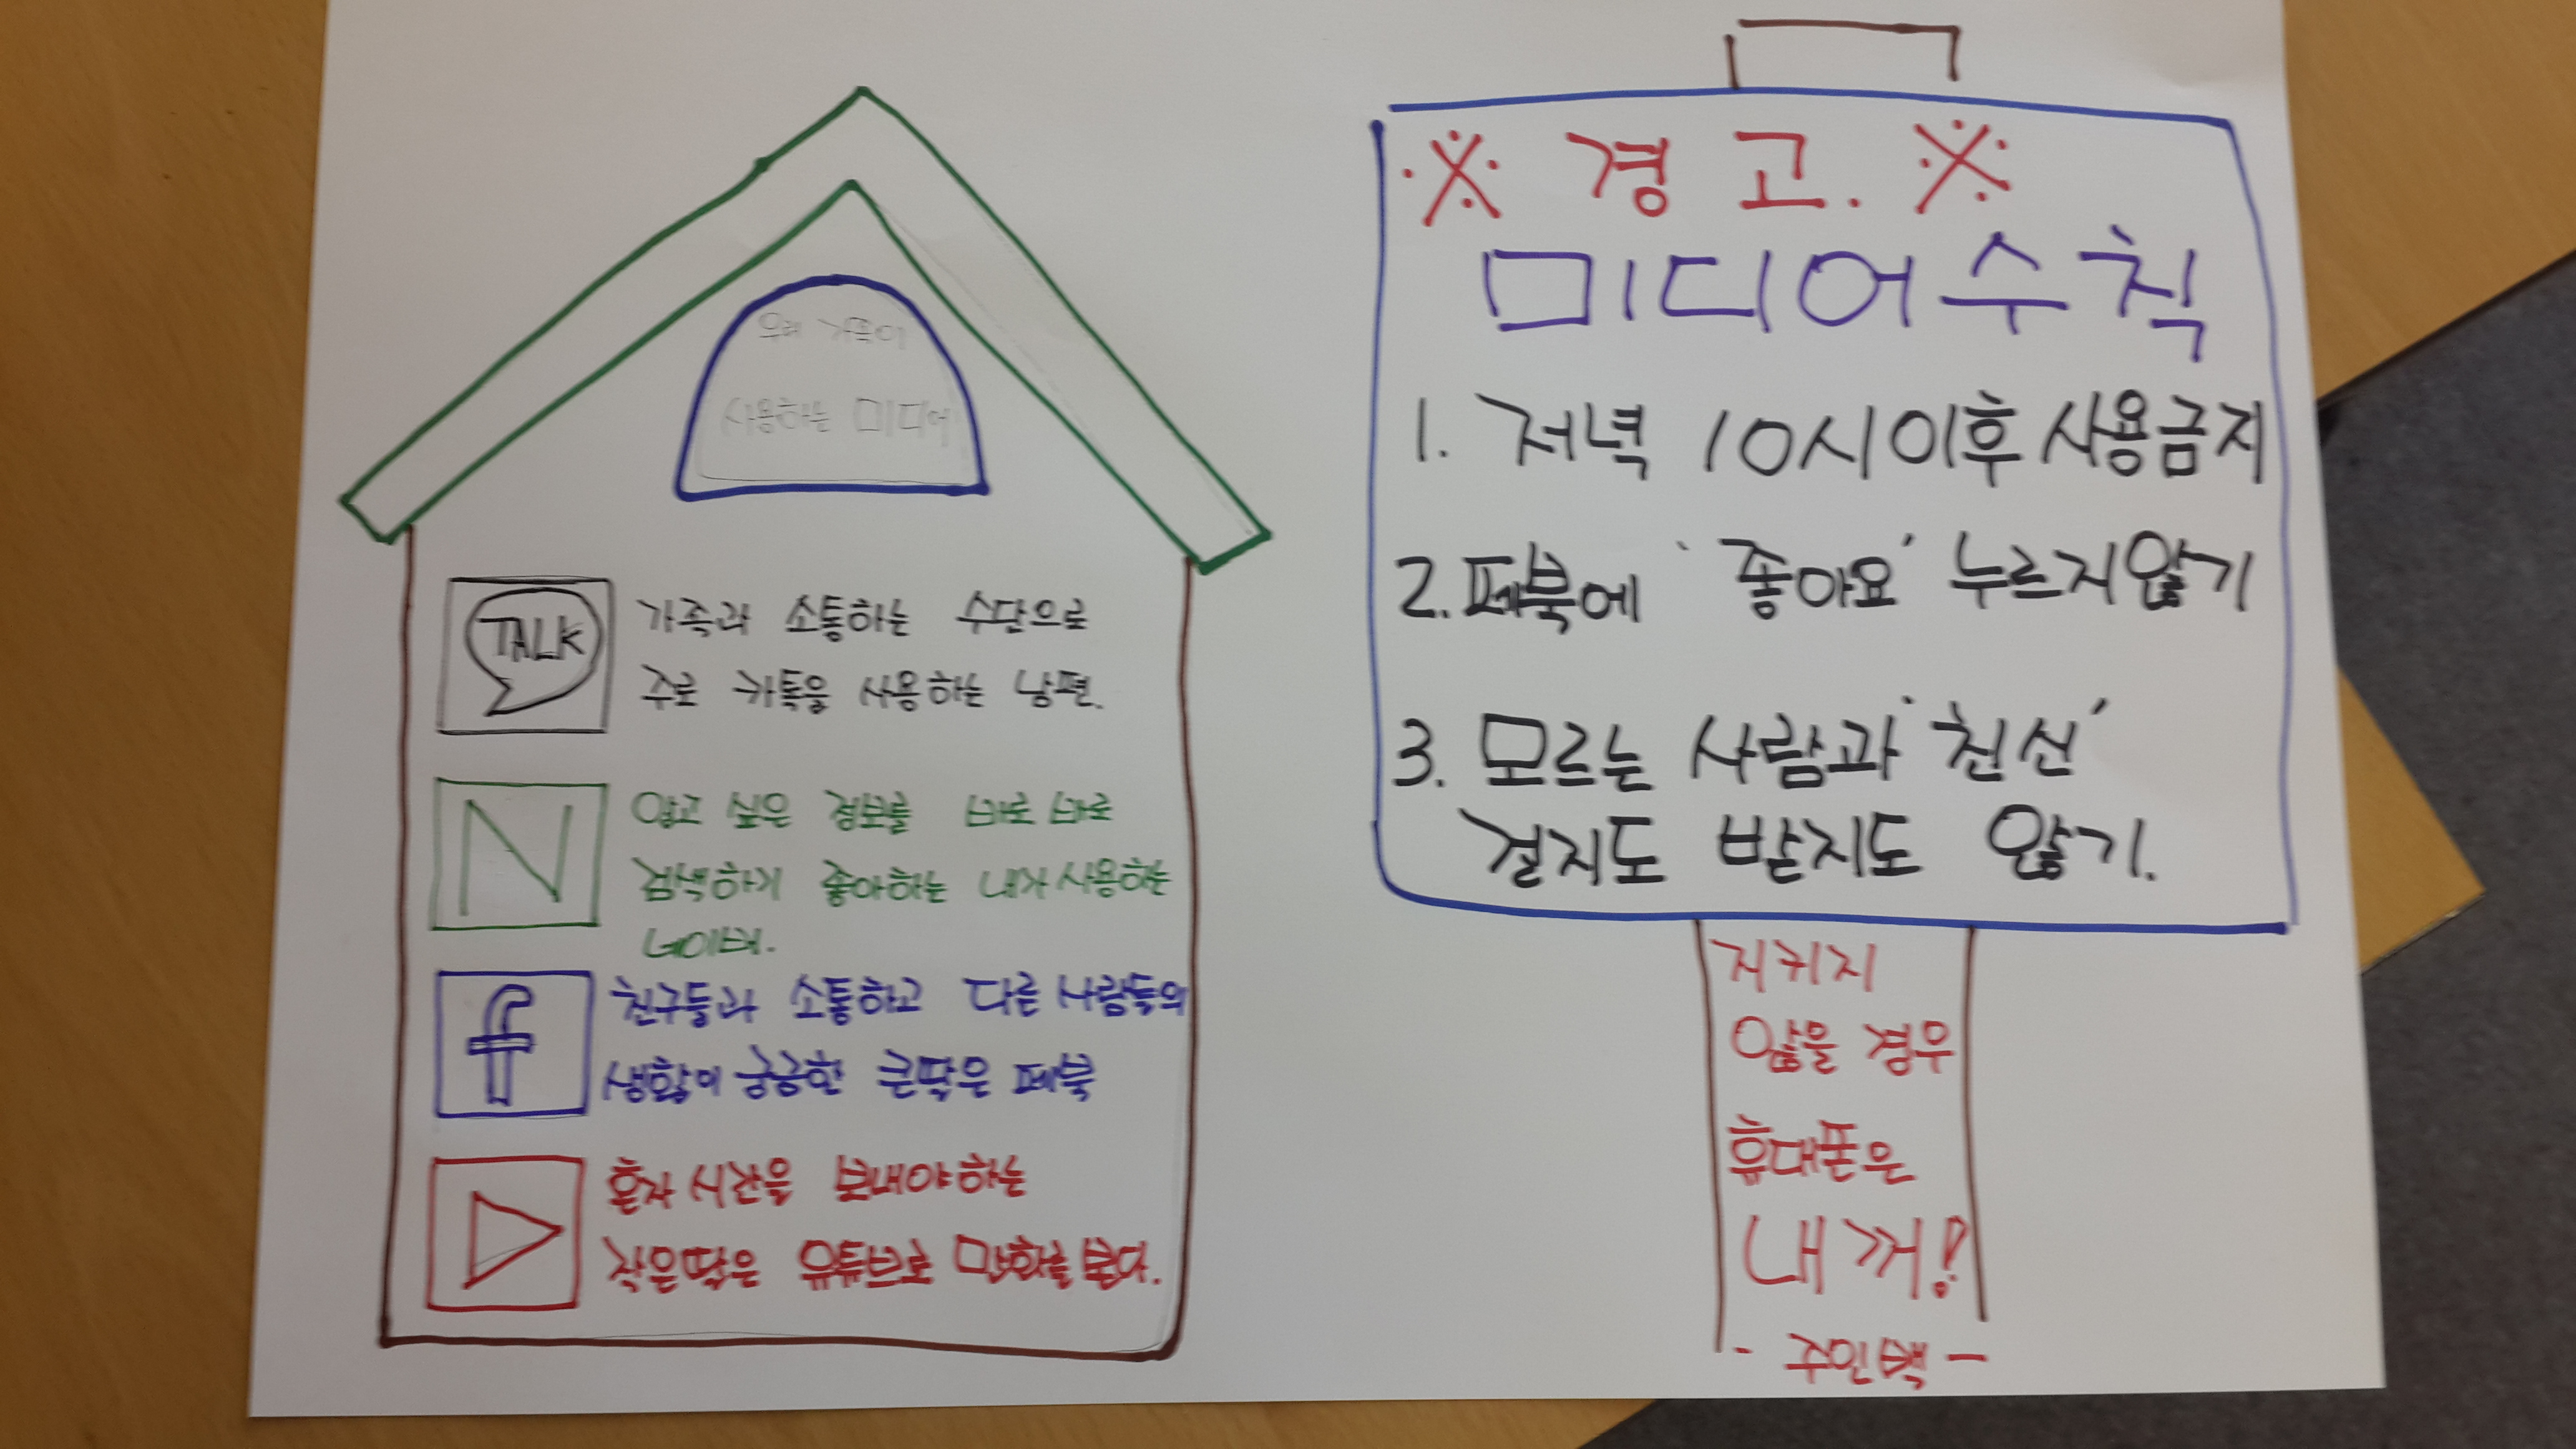 우리 가족이
사용하는 미디어
TALK
가족과 소통하는 수단으로
주로 카톡을 사용하는 남편.
N
알고 싶은 정보를 바로 바로
검색하기 좋아하는 내가 사용하는
네이버.
f
친구들과 소통하고 다른 사람들의
생활이 궁금한 큰딸은 페북
혼자 시간을 보내야하는
작은딸은 유튜브로 만화를 본다.
※ 경고. ※
미디어수칙
1. 저녁 10시이후 사용금지
2. 페북에 '좋아요' 누르지않기
3. 모르는 사람과 '친신'
걸지도 받지도 않기.
지키지
않을 경우
휴대폰은
내꺼!
- 주인백 -